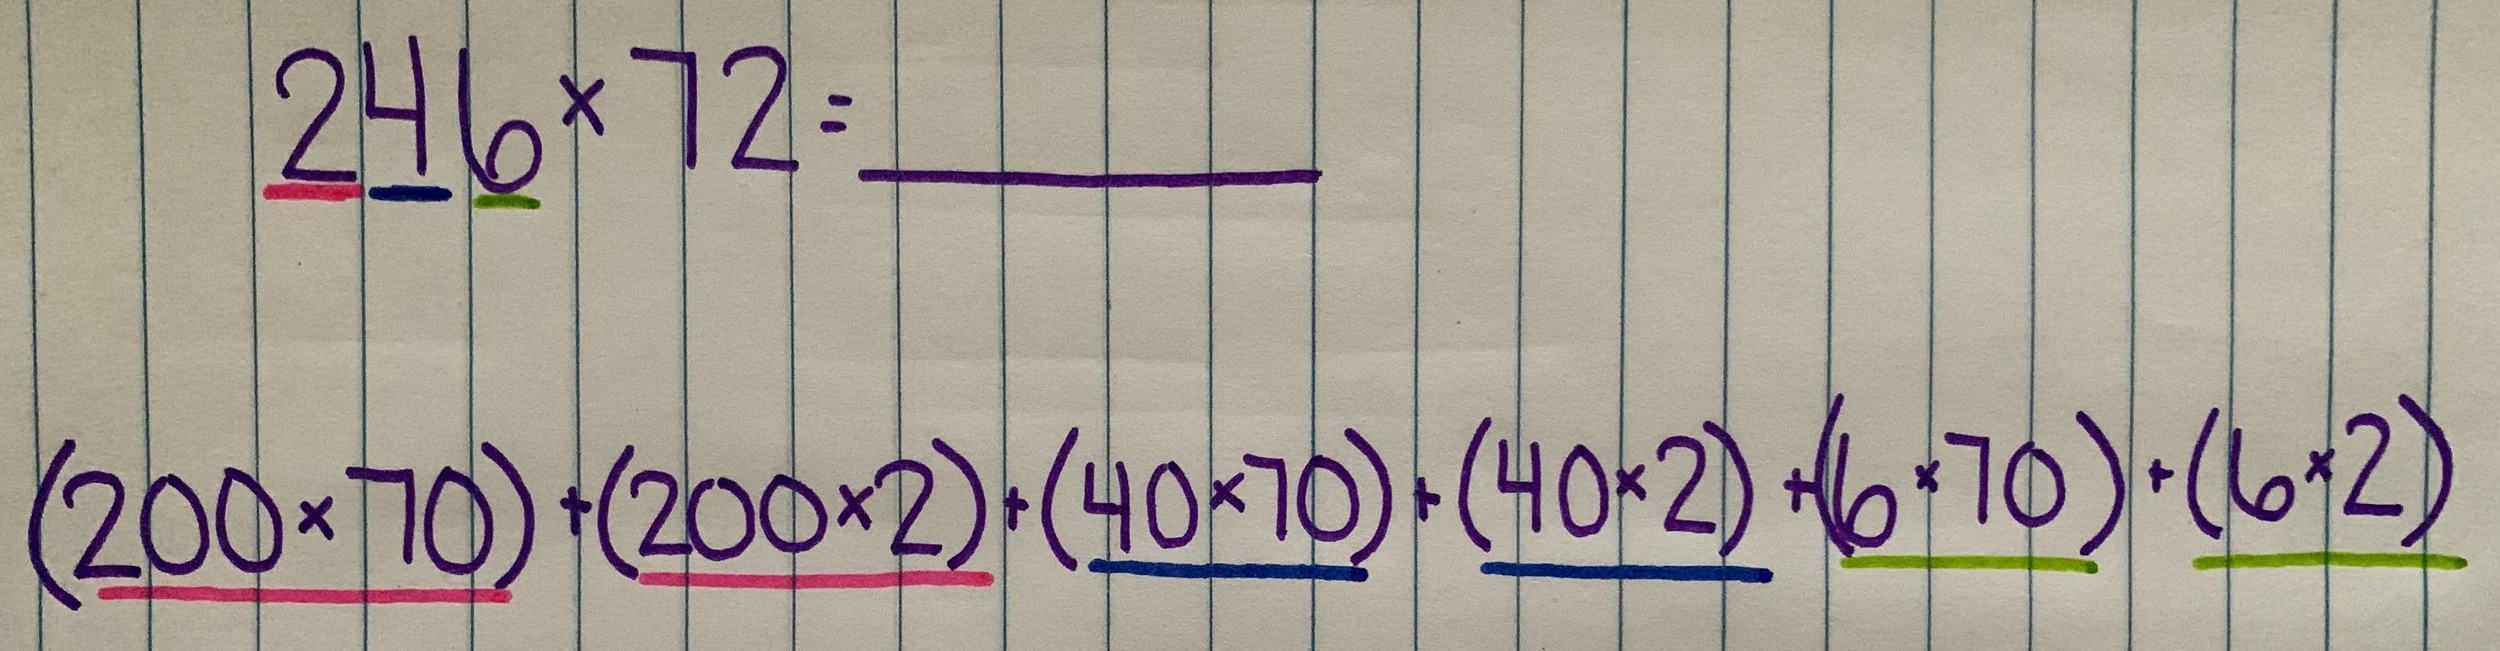 246×72=
(200×70)+(200×2)+(40×70)+(40×2)+(6×70)+(6×2)